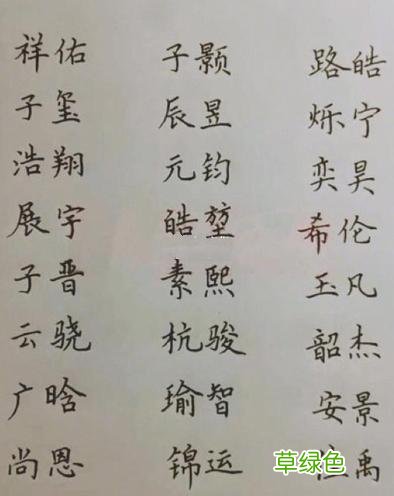 祥佑 子颢 路皓
子玺 辰昱 烁宁
浩翔 元钧 奕昊
展宇 皓堃 希伦
子晋 素熙 玉凡
云骁 杭骏 韶杰
广晗 瑜智 安景
尚恩 锦运 禹
草绿色